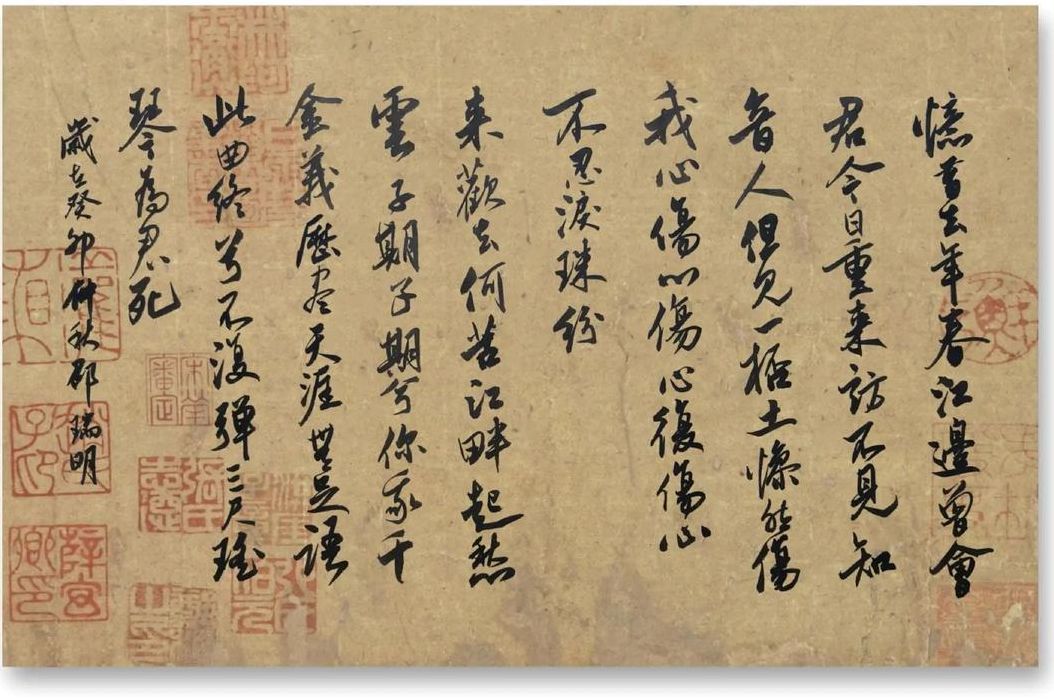 憶昔去年春江邊曾會
君今日重来訪不見知
音人但见一抔土慘然傷
我心傷心傷心復傷心
不忍淚珠紛
来歡去何苦江畔起愁
雲子期子期兮你我千
金義歷尽天涯無足語
此曲終兮不復彈三尺瑤
琴為君死
歲在癸卯仲秋邵瑞明